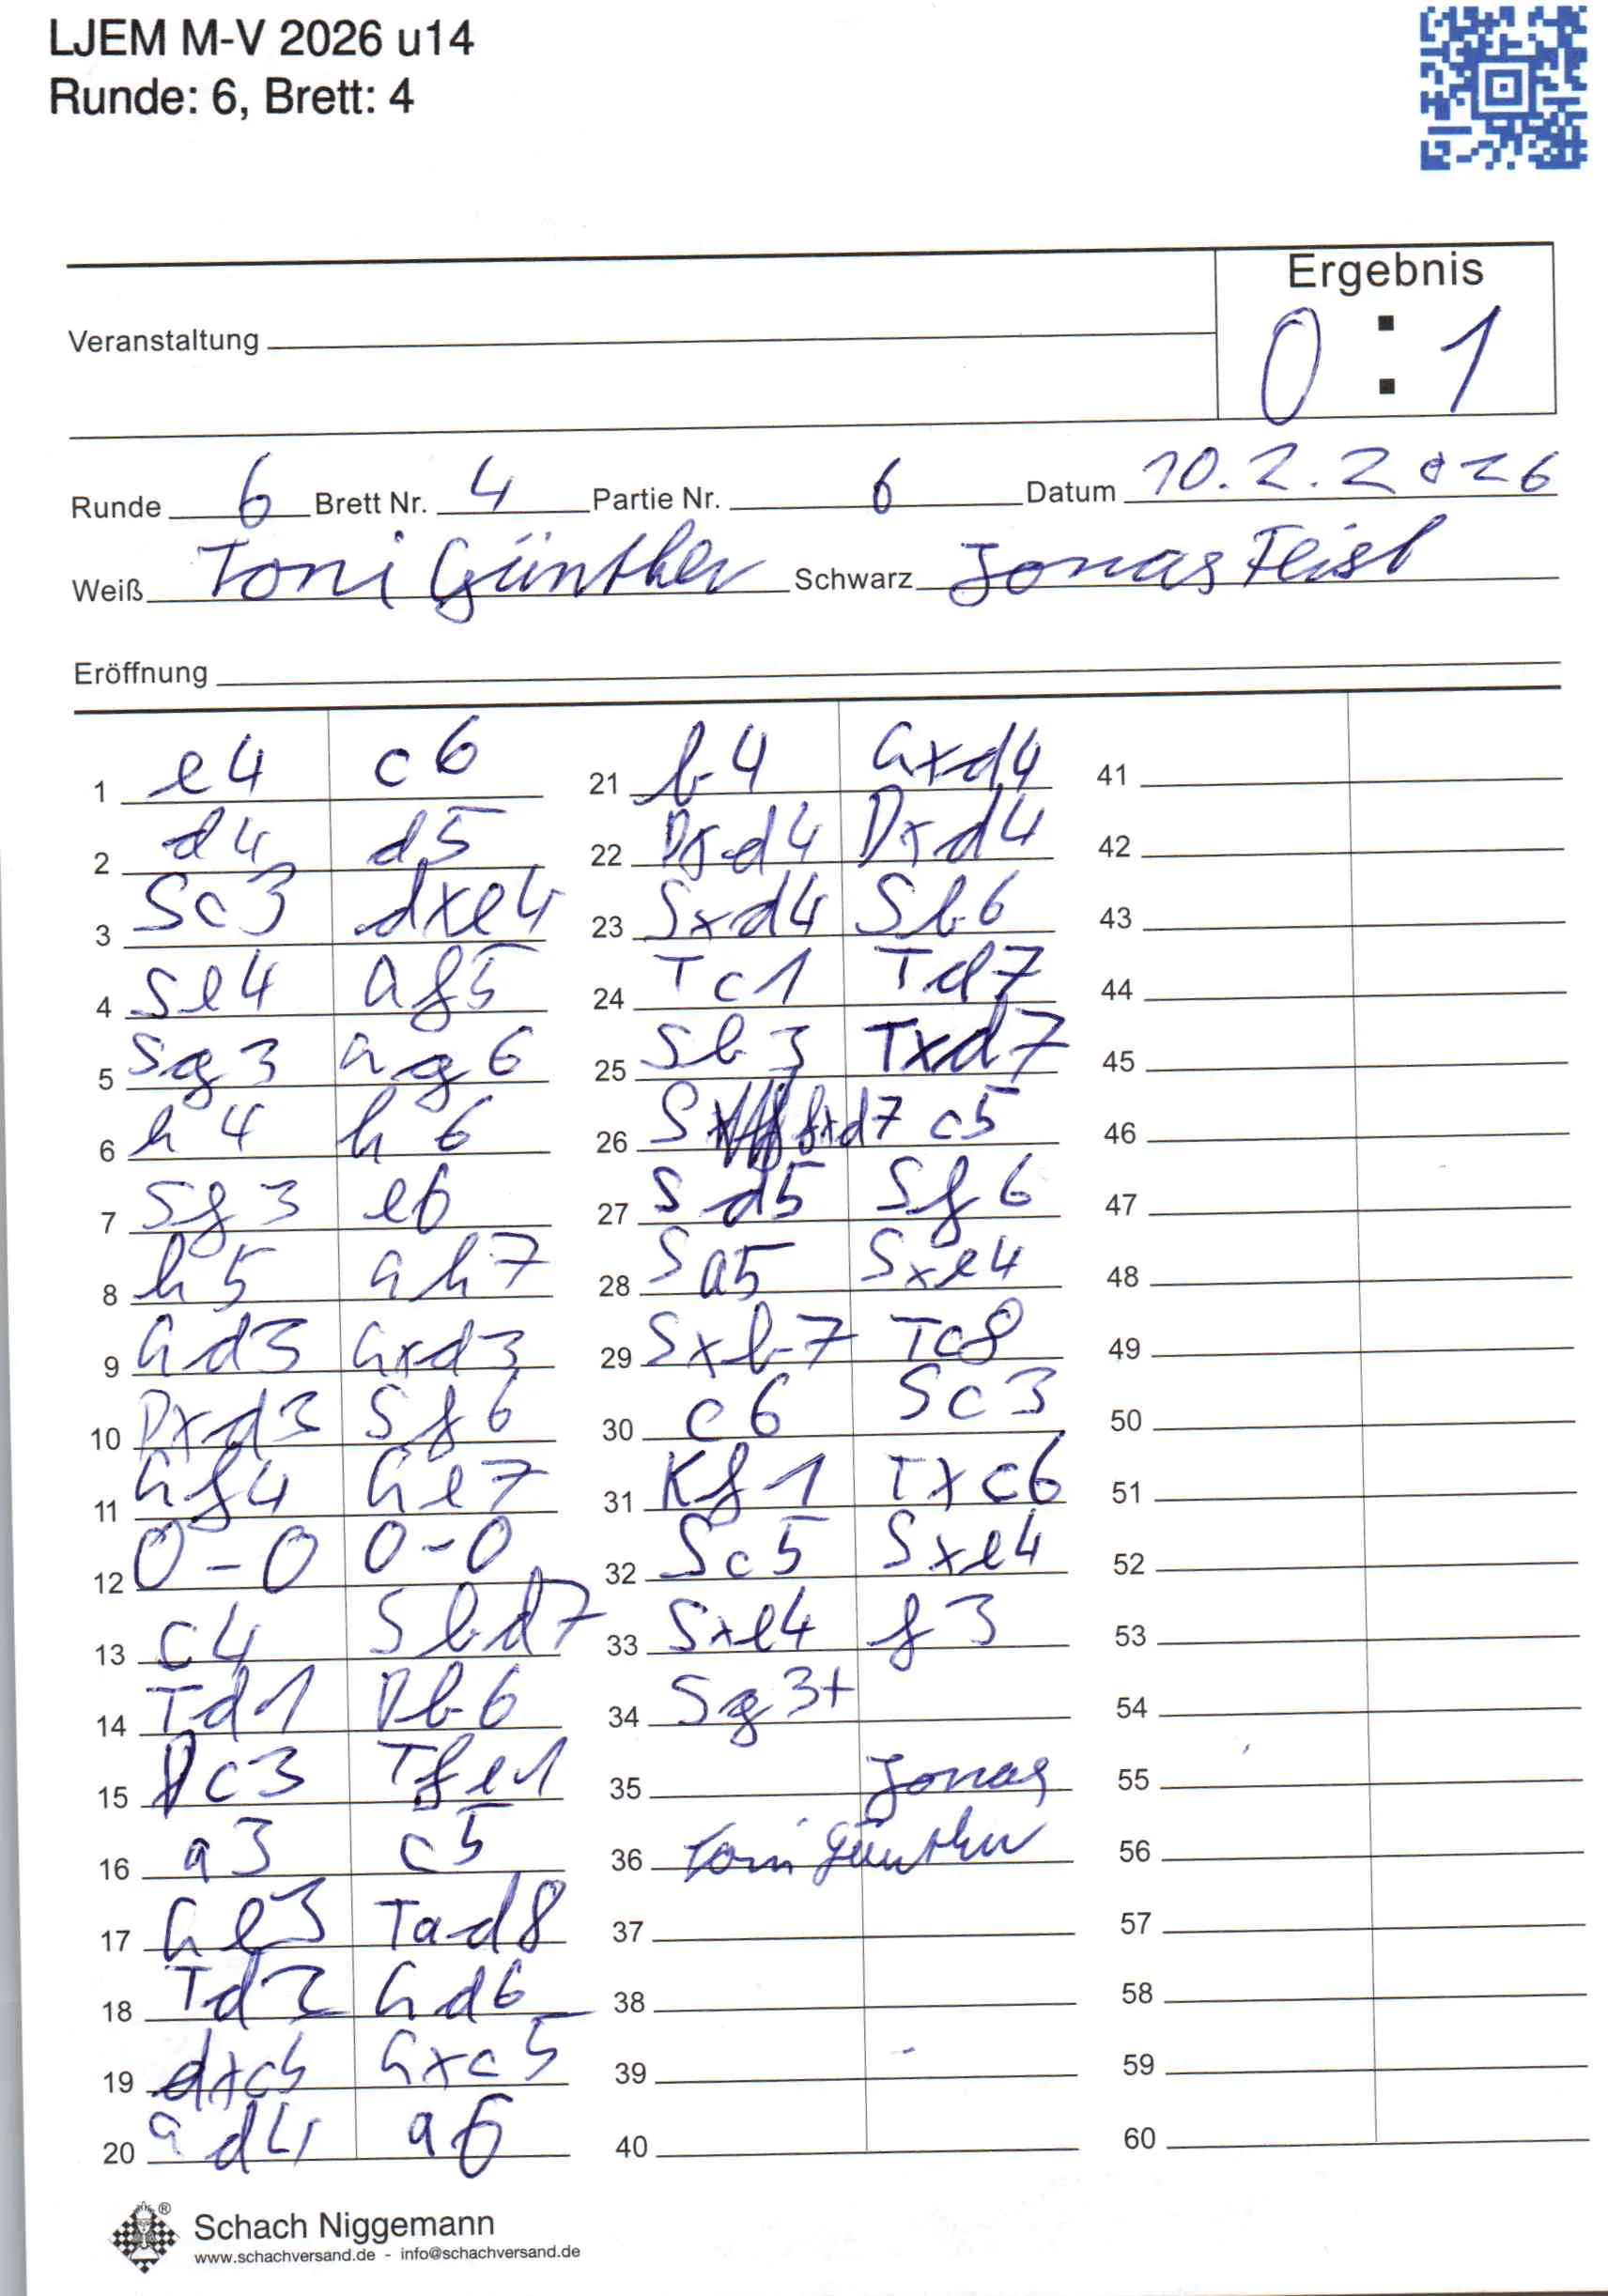 LJEM M-V 2026 u14
Runde: 6, Brett: 4
Ergebnis
0 : 1
Veranstaltung
Runde 6 Brett Nr. 4 Partie Nr. 6 Datum 10.2.2026
Weiß Toni Günther Schwarz Jonas Feisl
Eröffnung
1 e4 c6
2 d4 d5
3 Sc3 dxe4
4 Se4 af5
5 Sg3 ag6
6 h4 h6
7 Sf3 e6
8 h5 Gh7
9 Gd3 Gxd3
10 Dxd3 Sf6
11 Gf4 Ge7
12 0-0 0-0
13 c4 Sbd7
14 Td1 Db6
15 Dc3 Tfe1
16 a3 c5
17 Ge3 Tad8
18 Td2 Gd6
19 dxc5 Gxc5
20 Gd4 a6
21 b4 Gxd4
22 Dxd4 Dxd4
23 Sxd4 Sb6
24 Tc1 Td7
25 Sb3 Txd7
26 Sfxd7 c5
27 Sd5 Sf6
28 Sa5 Sxe4
29 Sxb7 Tc8
30 c6 Sc3
31 Kf1 Txc6
32 Sc5 Sxe4
33 Sxe4 f3
34 Sg3+
35 Jonas
36 Toni Günther
37
38
39
40
41
42
43
44
45
46
47
48
49
50
51
52
53
54
55
56
57
58
59
60
Schach Niggemann
www.schachversand.de - info@schachversand.de